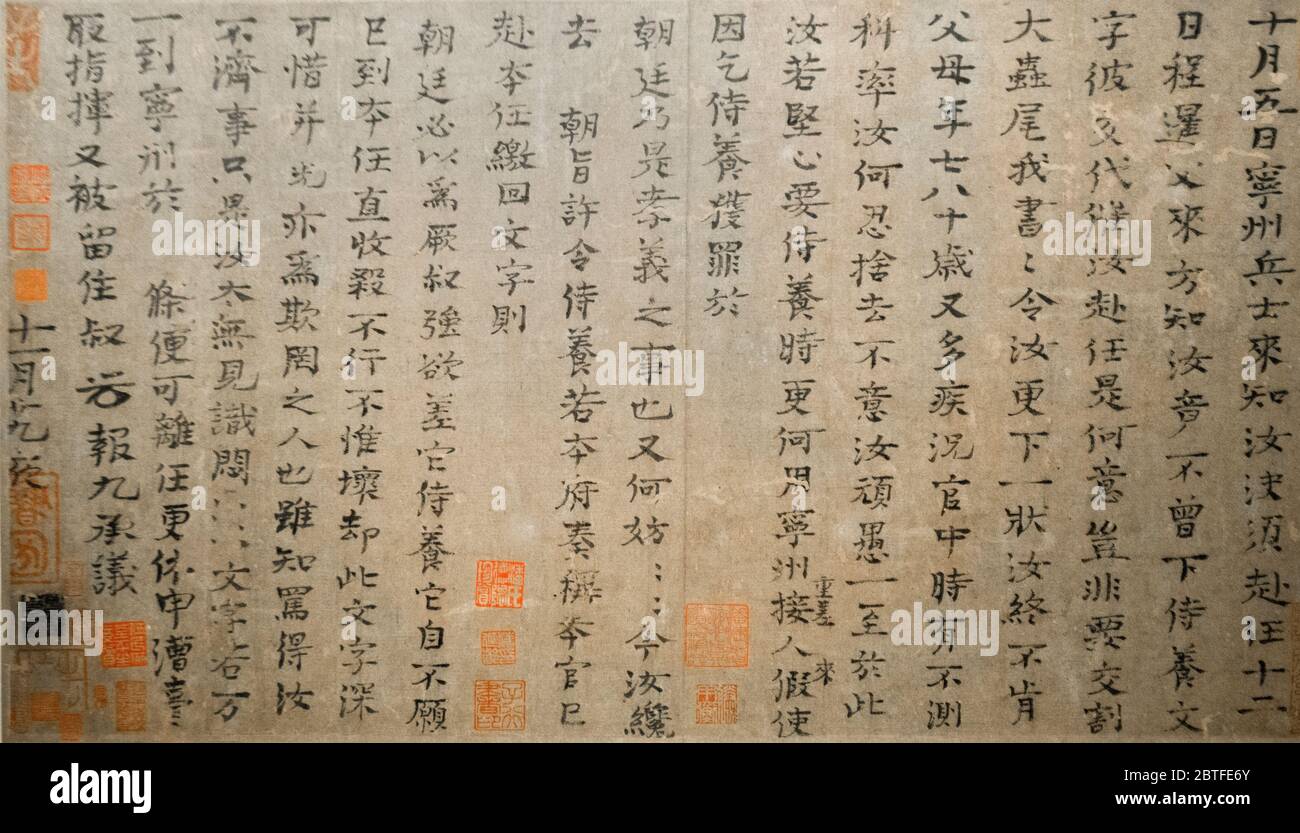 十月五日寧州兵士來知汝決須赴任十二
日程暹父來方知汝竟不曾下侍養文
字彼交代催汝赴任是何意豈非要交割
大蟲尾我書〻令汝更下一狀汝終不肯
父母年七八十歲又多疾況官中時有不測
科率汝何忍捨去不意汝頑愚一至於此
汝若堅心要侍養時更何用寧州重差接人來假使
因乞侍養獲罪於
朝廷乃是孝義之事也又何妨〻〻今汝纔
去 朝旨許令侍養若本府奏稱本官已
赴本任繳回文字則
朝廷必以爲厥叔強欲差它侍養它自不願
已到本任直收殺不行不惟壞却此文字深
可惜并光亦爲欺罔之人也雖知罵得汝
不濟事只是汝太無見識悶〻〻文字若万
一到寧州於 條便可離任更休申漕臺
取指揮又被留住叔 光報九承議
十一月
alamy
Image ID: 2BTFE6Y
www.alamy.com